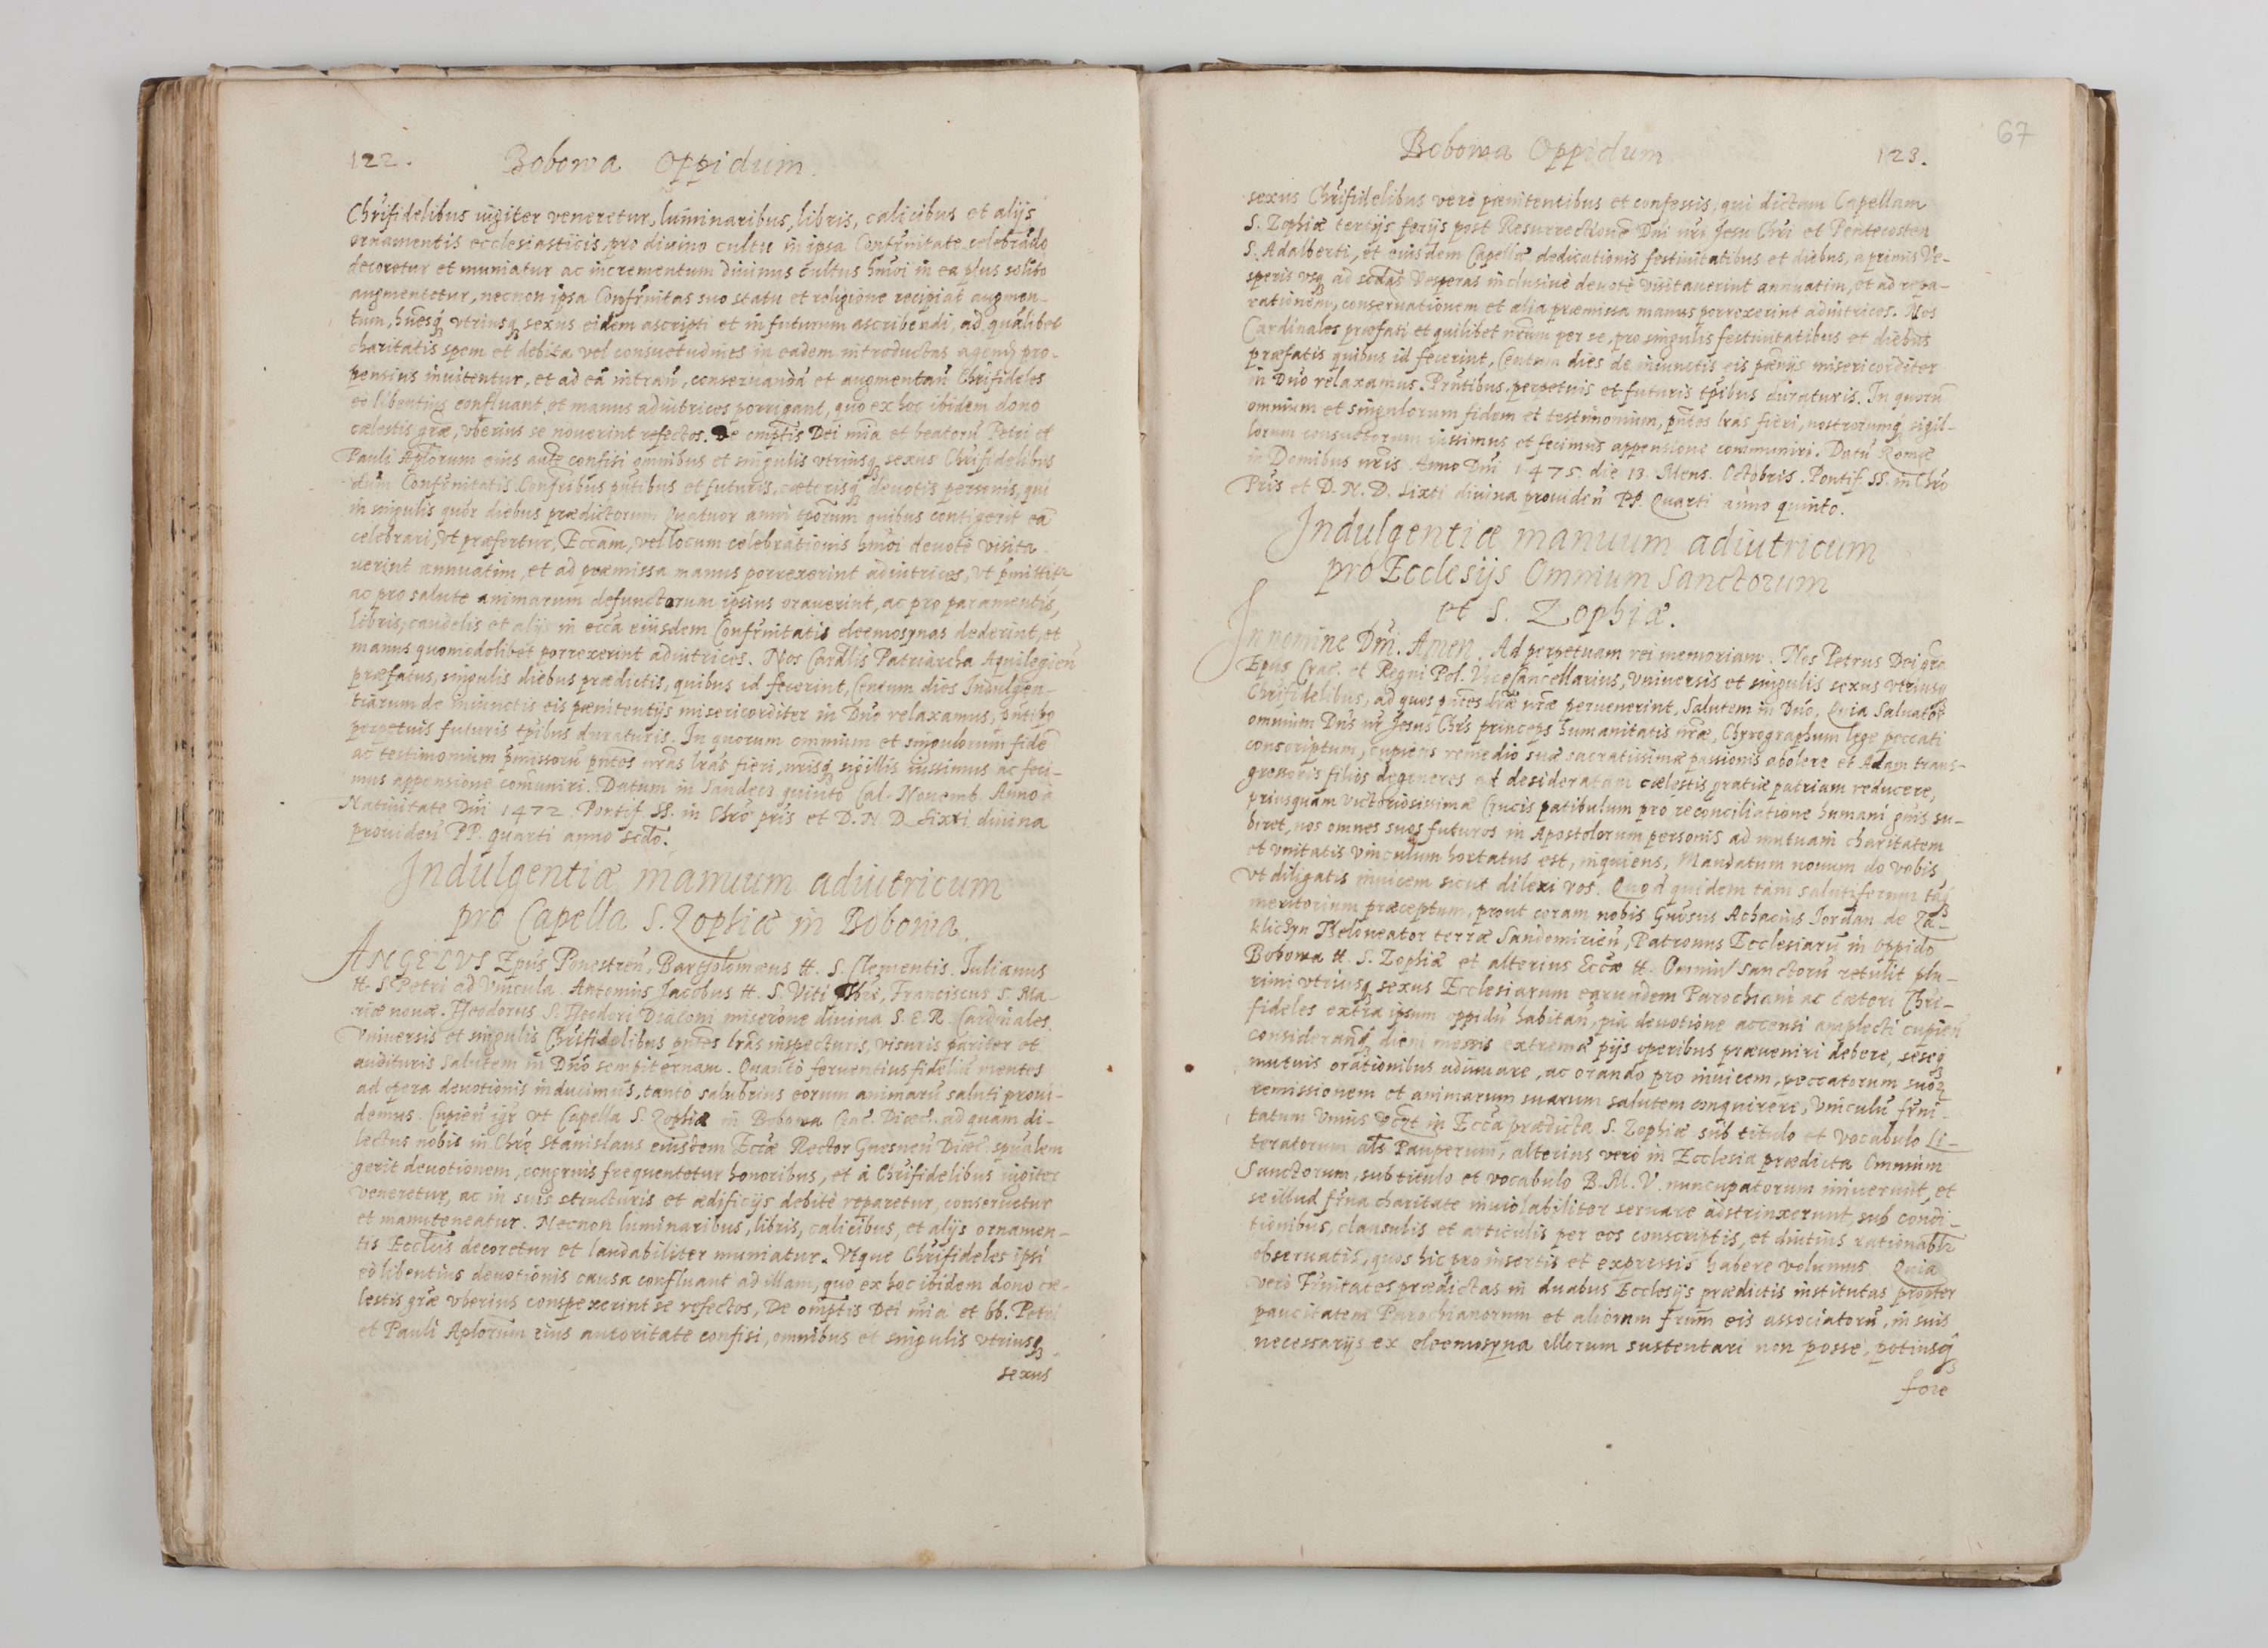 122. Bobowa Oppidum.
Chrĩfidelibus iugiter veneretur, luminaribus, libris, calicibus et alijs
ornamentis ecclesiasticis, pro diuino cultu in ipsa Confrñitate celebrãdo
decoretur et muniatur ac incrementum diuinus cultus hmõi in ea plus solito
augmentetur, necnon ipsa Confrñitas suo statu et religione recipiat augmen-
tum, hñesq; vtriusq; sexus eidem ascripti et in futurum ascribendi, ad qualibet
charitatis spem et debita vel consuetudines in eadem introductas pro-
pensius inuitentur, et ad eã intrañ, conseruandã et augmentañ Chrĩfideles
eò libentius confluant et manus adiutrices porrigant, quo ex hoc ibidem dono
cælestis grãæ, vberius se nouerint refectos. De omptis Dei mĩa et beatorũ Petri et
Pauli Aplõrum eius auţte confisi omnibus et singulis vtriusq; sexus Chrĩfidelibus
dum Confrñitatis Confrĩbus pñtibus et futuris, cæterisq; deuotis personis, qui
in singulis quor diebus prædictorum Quatuor anni tpõrum quibus contigerit eã
celebrari, vt præfertur, Eccãm, vel locum celebrationis hmõi deuotè visita-
uerint annuatim, et ad præmissa manus porrexerint adiutrices, vt pmittitr
ac pro salute animarum defunctorum ipsius orauerint, ac pro paramentis,
libris, candelis et alijs in eccã eiusdem Confrñitatis eleemosynas dederint, et
manus quomodolibet porrexerint adiutrices. Nos Cardlis Patriarcha Aquilegieñ
præfatus, singulis diebus prædictis, quibus id fecerint, Centum dies Indulgen-
tiarum de iniunctis eis pænitentijs misericorditer in Dño relaxamus, pñtibq
perpetuis futuris tpĩbus duraturis. In quorum omnium et singulorum fidẽ
ac testimonium pmissorũ pñtes nrãs lrãs fieri, nrisq; sigillis iussimus ac feci-
mus appensione comuniri. Datum in Sandecz quinto Cal. Nouemb. Anno à
Natiuitate Dñi 1472. Pontif. SS. in Chrõ pris et D. N. D. Sixti diuina
prouideñ PP. quarti anno scdõ.
Indulgentiæ manuum adiutricum
pro Capella S. Zophiæ in Bobowa.
ANGELVS Epũs Penestreñ, Bartholomæus tt. S. Clementis. Iulianus
tt. S. Petri ad Vincula. Antonius Jacobus tt. S. Viti Franciscus S. Ma-
riæ nouæ. Theodorus S. Theodori Diaconi miserõne diuina S. E. R. Cardinales.
Vniuersis et singulis Chrĩfidelibus pñtes lrãs inspecturis, visuris pariter et
audituris Salutem in Dño sempiternam. Quantò feruentius fideliũ mentes
ad opera deuotionis inducimus, tantò salubrius eorum animarũ saluti proui-
demus. Cupieñ igr vt Capella S. Zophiæ in Bobowa Crac. Diæc. ad quam di-
lectus nobis in Chrõ Stanislaus eiusdem Eccæ Rector Gnesneñ Diæc. spũalem
gerit deuotionem, congruis frequentetur honoribus, et à Chrĩfidelibus iugiter
veneretur, ac in suis structuris et ædificijs debitè reparetur, conseruetur
et manuteneatur. Necnon luminaribus, libris, calicibus, et alijs ornamen-
tis Ecclĩis decoretur et laudabiliter muniatur. Vtque Chrĩfideles ipsi
eò libentius deuotionis causa confluant ad illam, quo ex hoc ibidem dono cæ-
lestis grãæ vberius conspexerint se refectos, De omptis Dei mĩa et bb. Petri
et Pauli Aplõrum eius autoritate confisi, omnibus et singulis vtriusq;
sexus
67
Bobowa Oppidum 123.
sexus Chrĩfidelibus verè pænitentibus et confessis, qui dictam Capellam
S. Zophiæ tertijs ferijs post Resurrectionẽ Dñi nri Jesu Chrĩ et Pentecosten
S. Adalberti, et eiusdem Capellæ dedicationis festiuitatibus et diebus, a primis Ve-
speris vsq; ad scdas Vesperas inclusiuè deuotè visitauerint annuatim, et ad repa-
rationem, conseruationem et alia præmissa manus porrexerint adiutrices. Nos
Cardinales præfati et quilibet nrũm per se, pro singulis festiuitatibus et diebus
præfatis quibus id fecerint, Centum dies de iniunctis eis pænijs misericorditer
in Dño relaxamus. Pñtibus perpetuis et futuris tpĩbus duraturis. In quorũ
omnium et singulorum fidem et testimonium, pñtes lrãs fieri, nostrorumq; sigil-
lorum consuetorum iussimus et fecimus appensione communiri. Datũ Romæ
in Domibus nris Anno Dñi 1475. die 13. Mens. Octobris. Pontif. SS. in Chrõ
Pris et D. N. D. Sixti diuina prouideñ PP. Quarti anno quinto.
Indulgentiæ manuum adiutricum
pro Ecclesijs Omnium Sanctorum
et S. Zophiæ.
In nomine Dñi. Amen. Ad perpetuam rei memoriam. Nos Petrus Dei grã
Epũs Crac. et Regni Pol. Vicecancellarius, Vniuersis et singulis sexus vtriusq;
Chrĩfidelibus, ad quos pñtes lræ nræ peruenerint, Salutem in Dño, Quia Saluator
omnium Dñs nr Jesus Chrs princeps humanitatis nræ, Chyrographum lege peccati
conscriptum, cupiens remedio suæ sacratissimæ passionis abolere et Adam trans-
gressoris filios degeneres ad desideratam cælestis gratiæ patriam reducere,
priusquam victoriosissimæ Crucis patibulum pro reconciliatione humani gñis su-
biret, nos omnes suos futuros in Apostolorum personis ad mutuam charitatem
et vnitatis vinculum hortatus est, inquiens, Mandatum nouum do vobis
vt diligatis inuicem sicut dilexi vos. Quod quidem tàm salutiferum tàq;
meritorium præceptum, prout coram nobis Gñosus Achacius Jordan de Za-
kliczyn Theloneator terræ Sandomirieñ, Patronus Ecclesiarũ in oppido
Bobowa tt. S. Zophiæ et alterius Eccæ tt. Omniũ Sanctorũ retulit plu-
rimi vtriusq; sexus Ecclesiarum earundem Parochiani ac cæteri Chrĩ-
fideles extra ipsum oppidũ habitañ, pia deuotione accensi amplecti cupieñ
considerañq; diem messis extremæ pijs operibus præueniri debere, seseq;
mutuis orationibus adiuuare, ac orando pro inuicem, peccatorum suor
remissionem et animarum suarum salutem conquirere, Vniculũ frñi-
tatum Vnius in Eccã prædicta S. Zophiæ sub titulo et vocabulo Li-
teratorum als Pauperum, alterius verò in Ecclesia prædicta Omnium
Sanctorum, sub titulo et vocabulo B. M. V. nuncupatorum iniuerunt, et
se illud frña charitate inuiolabiliter seruare adstrinxerunt, sub condi-
tionibus, clausulis et articulis per eos conscriptis, et diutius rationablr
obseruatis, quos hic pro insertis et expressis habere volumus. Quia
verò Frñitates prædictas in duabus Ecclesijs prædictis institutas propter
paucitatem Parochianorum et aliorum frũm eis associatorũ, in suis
necessarijs ex eleemosyna illorum sustentari non posse, potiusq;
fore